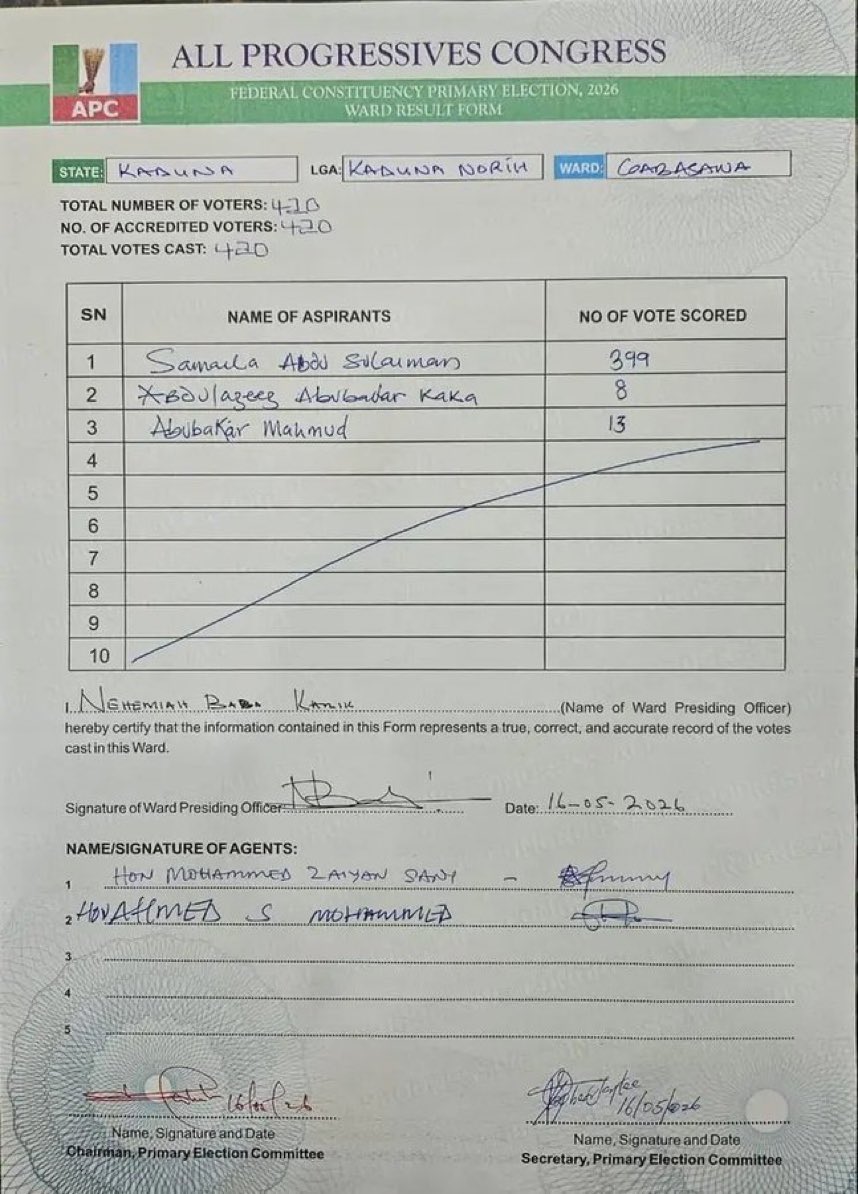 ALL PROGRESSIVES CONGRESS
APC
FEDERAL CONSTITUENCY PRIMARY ELECTION, 2026
WARD RESULT FORM
STATE: KADUNA LGA: KADUNA NORTH WARD: GABASAWA
TOTAL NUMBER OF VOTERS: 420
NO. OF ACCREDITED VOTERS: 420
TOTAL VOTES CAST: 420
SN NAME OF ASPIRANTS NO OF VOTE SCORED
1 Samaila Abdu Sulaiman 399
2 Abdulazeez Abubakar Kaka 8
3 Abubakar Mahmud 13
4
5
6
7
8
9
10
I, NEHEMIAH BABA (Name of Ward Presiding Officer)
hereby certify that the information contained in this Form represents a true, correct, and accurate record of the votes
cast in this Ward.
Signature of Ward Presiding Officer Date: 16-05-2026
NAME/SIGNATURE OF AGENTS:
1 HON MOHAMMED ZAIYAN SANI -
2 HON AHMED S MOHAMMED
3
4
5
16/05/26 16/05/026
Name, Signature and Date
Chairman, Primary Election Committee
Name, Signature and Date
Secretary, Primary Election Committee